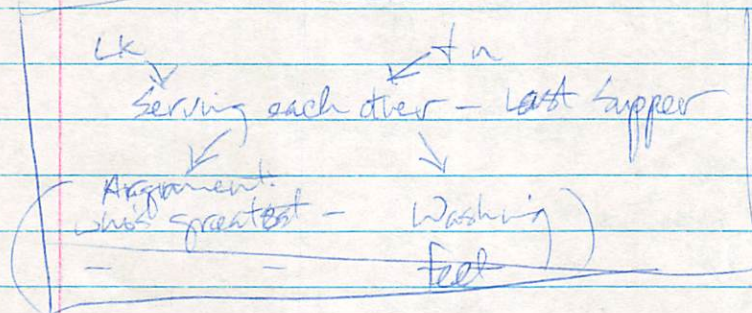 Lk Jn
Serving each other - Last Supper
Argument:
who's greatest - Washing
- - feet